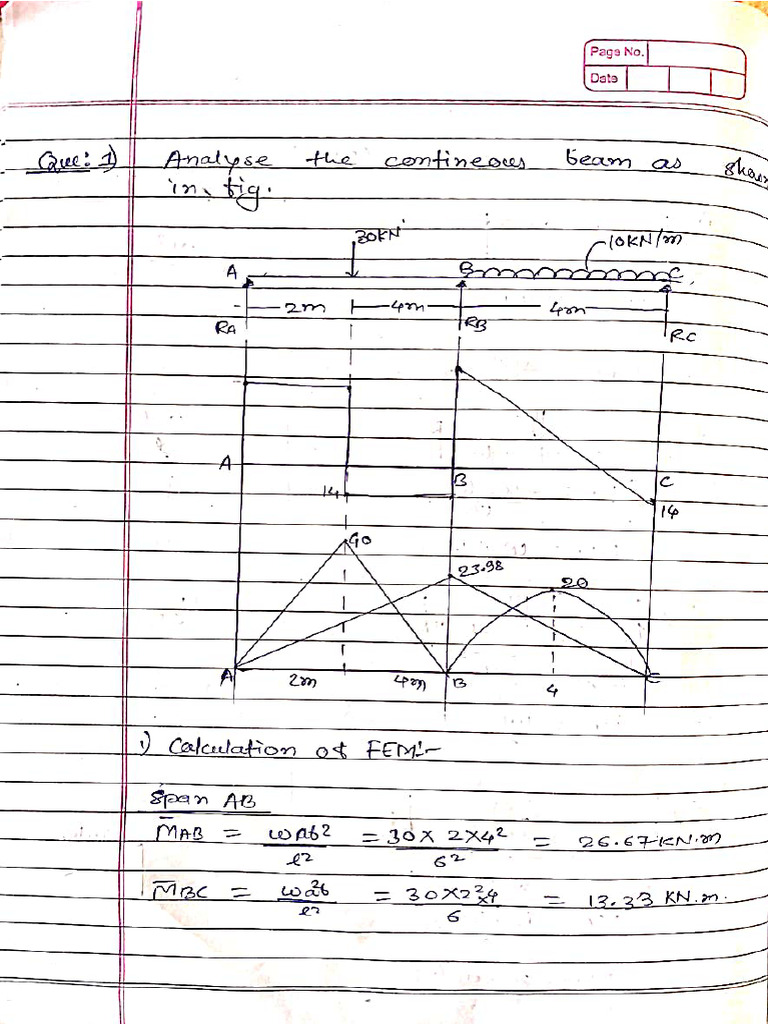 Page No.
Date
Que: 1) Analyse the contineous beam as shown
in fig.
30KN
10KN/m
A B C
2m 4m 4m
RA RB RC
A B C
14 14
90
23.98
20
A 2m 4m B 4 C
1) Calculation of FEM:-
Span AB
M̅AB = wab2 / l2 = 30 x 2x4² / 6² = 26.67 KN.m
M̅BC = wa²b / l2 = 30x2²x4 / 6 = 13.33 KN.m.